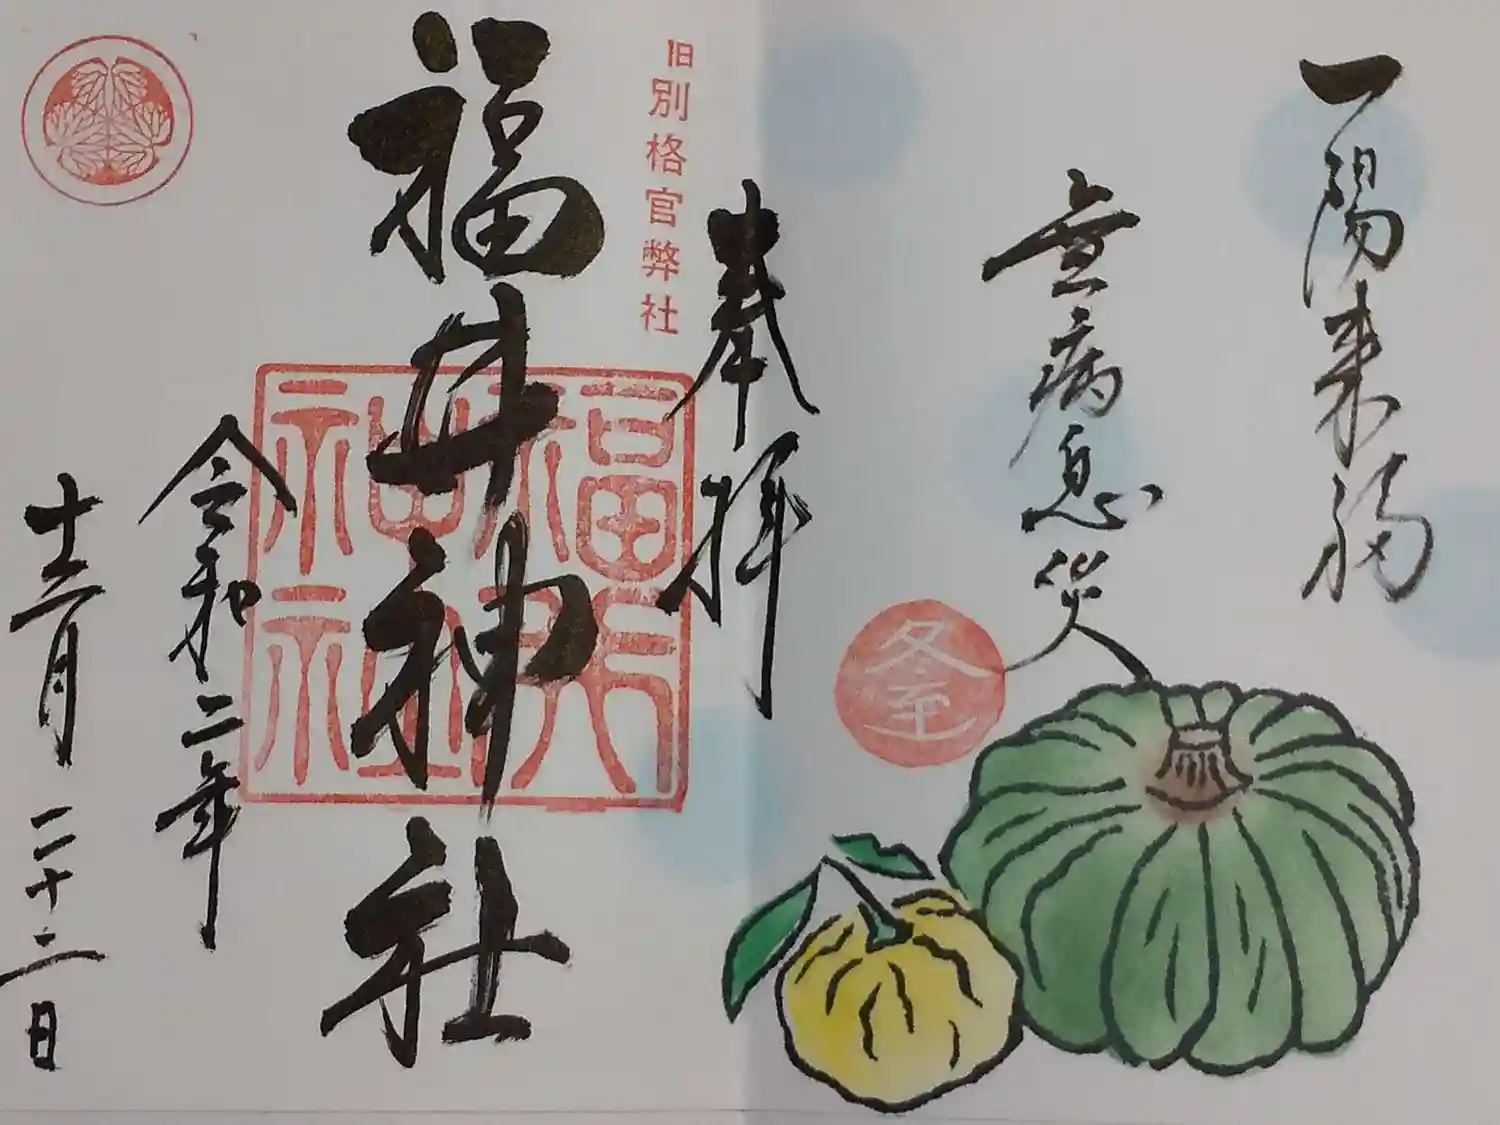 一陽来復
無病息災
冬至
奉拝
旧別格官弊社
福井神社
福井神社
令和二年
十二月二十二日